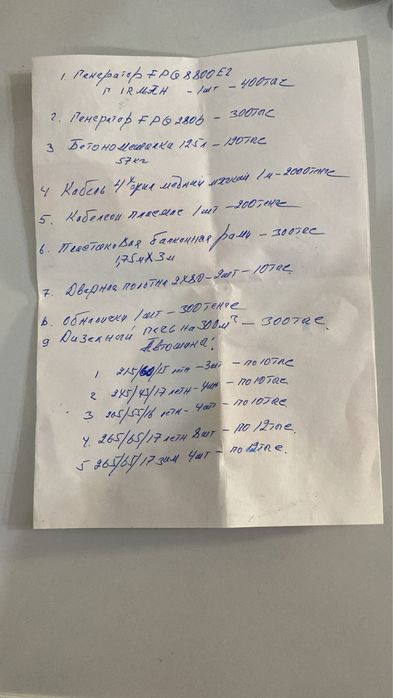 1. Генератор FPG 8800E2
FIRMAN - 1шт - 400тас
2. Генератор FPG 2800 - 300тас
3 Бетономешалка 125л - 120тас
57кг
4 Кабель 4х жил медный мягкий 1м - 2000тенге
5. пласмас 1шт - 200тенге
6. Пластиковая балконная рама - 300тас
1,75м х 3м
7. Дверное полотна 2х80 - 2шт - 10тас.
8. 1шт - 300тенге
9 Дизельный печь на 300м³ - 300тас.
Автошина!
1 215/60/15 летн - 3шт - по 10тас
2 245/45/17 летн - 4шт - по 10тас
3 205/55/16 летн - 4шт - по 10тас
4. 265/65/17 летн 8шт - по 12тас.
5 265/65/17 зим 4шт - по 12тас.